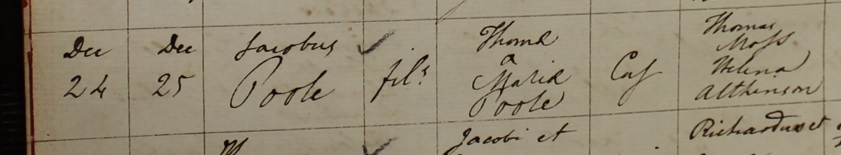 Dec 24
Dec 25
Jacobus
Poole
fil^s
Thomæ
&
Maria
Poole
Thomas
Moss
Helena
Atthinson
Jacobi et
Richardus et